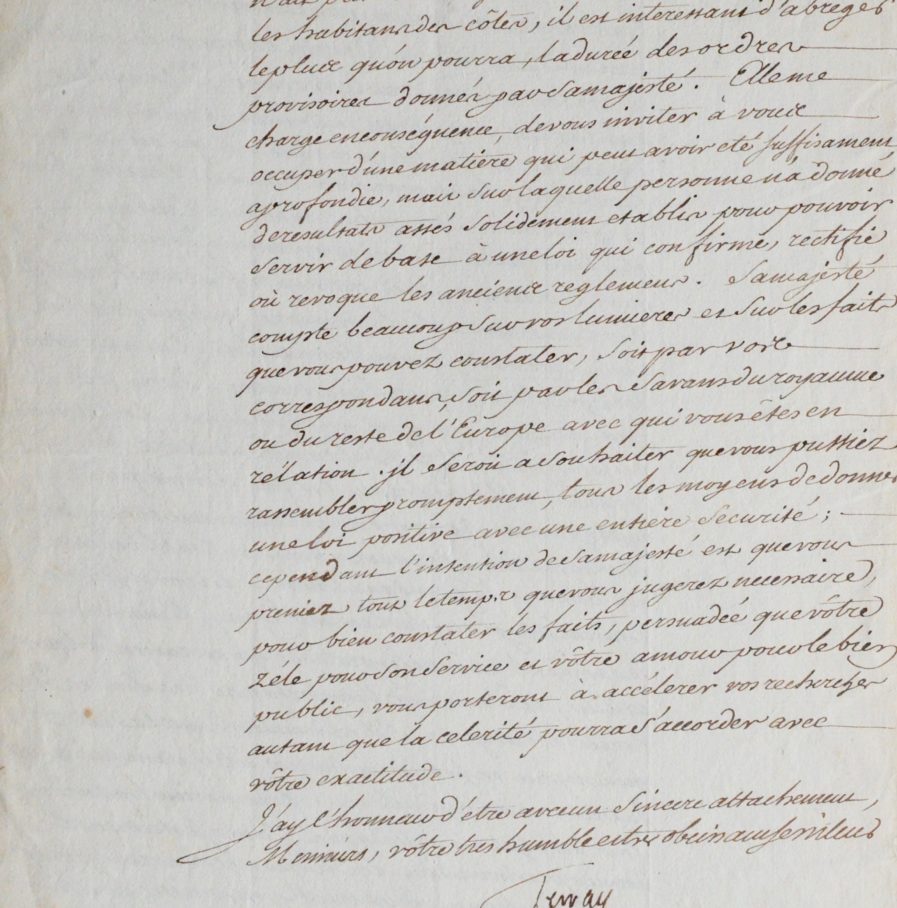 les habitans des côtes, il est interessant d'abreger
le plus qu'on pourra, la durée des ordres
provisoires donnés par Sa majesté. Elle me
charge en conséquence, de vous inviter à vous
occuper d'une matière qui peut avoir eté suffisament
aprofondie, mais sur laquelle personne n'a donné
de resultats assés solidement etablis pour pouvoir
servir de base à une loi qui confirme, rectifie
où revoque les anciens reglemens. Sa majesté
compte beaucoup sur vos lumieres et sur les faits
que vous pouvez constater, soit par vos
correspondans, soit par les Savans du royaume
ou du reste de l'Europe avec qui vous êtes en
rélation. il seroit a souhaiter que vous pussiez
rassembler promptement, tous les moyens de donner
une loi positive avec une entière securité;
cependant l'intention de Sa majesté est que vous
preniez tout le temps que vous jugerez necessaire,
pour bien constater les faits, persuadée que vôtre
zéle pour son service et vôtre amour pour le bien
public, vous porteront à accélérer vos recherches
autant que la celerité pourra s'accorder avec
vôtre exactitude.
J'ay l'honneur d'être avec un sincere attachement,
Messieurs, vôtre tres humble et tres obeissant serviteur
Terray